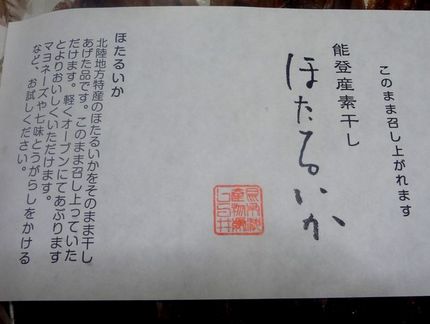 このまま召し上がれます
能登産素干し
ほたるいか
ほたるいか
北陸地方特産のほたるいかをそのまま干し
あげた品です。このまま召し上っていた
だけます。軽くオーブンにてあぶります
とよりおいしくいただけます。
マヨネーズや七味とうがらしをかける
など、お試しください。